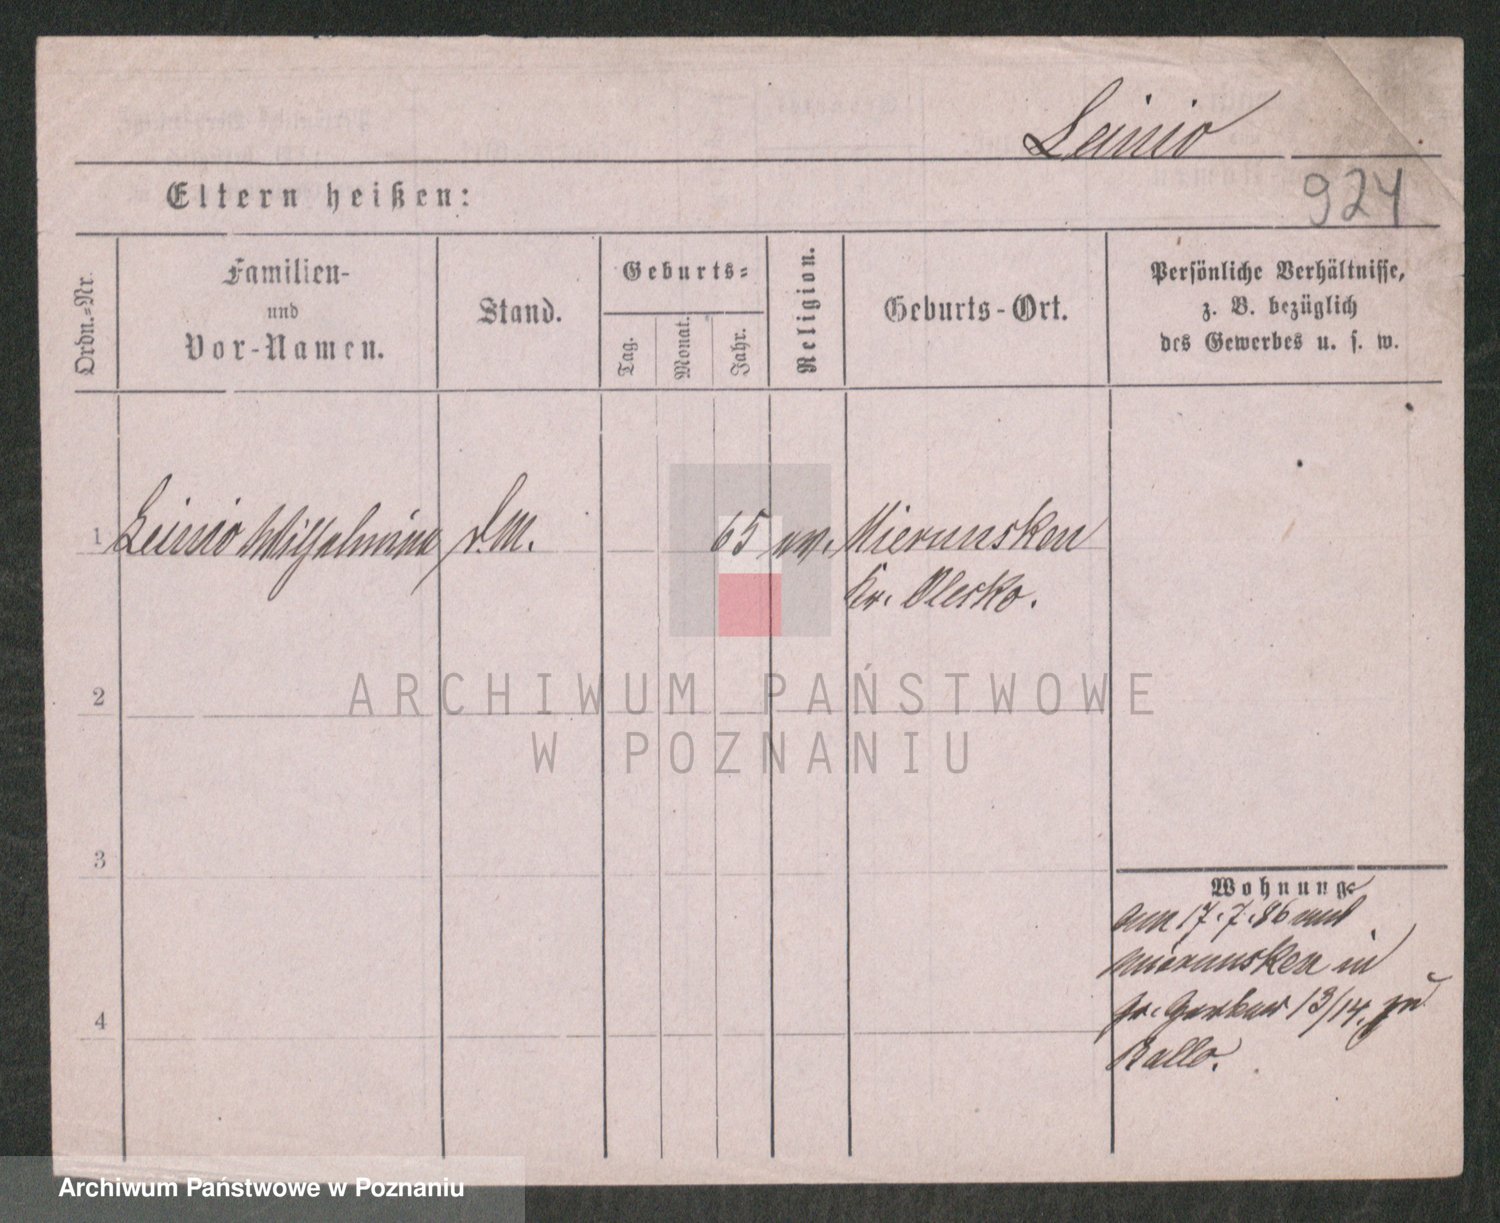 Leinio
Eltern heißen:
924
Ordn.=Nr.
Familien-
und
Vor-Namen.
Stand.
Geburts=
Tag.
Monat.
Jahr.
Religion.
Geburts-Ort.
Persönliche Verhältnisse,
z. B. bezüglich
des Gewerbes u. s. w.
1 Leinio Wilhelmine d. M. 65 ev. Mierunsken
Kr. Olesko.
2
ARCHIWUM PAŃSTWOWE
W POZNANIU
3
Wohnung
am 17.7.86 aus
Mierunsken in
gr. Gerber 13/14. zu
Kallo.
4
Archiwum Państwowe w Poznaniu